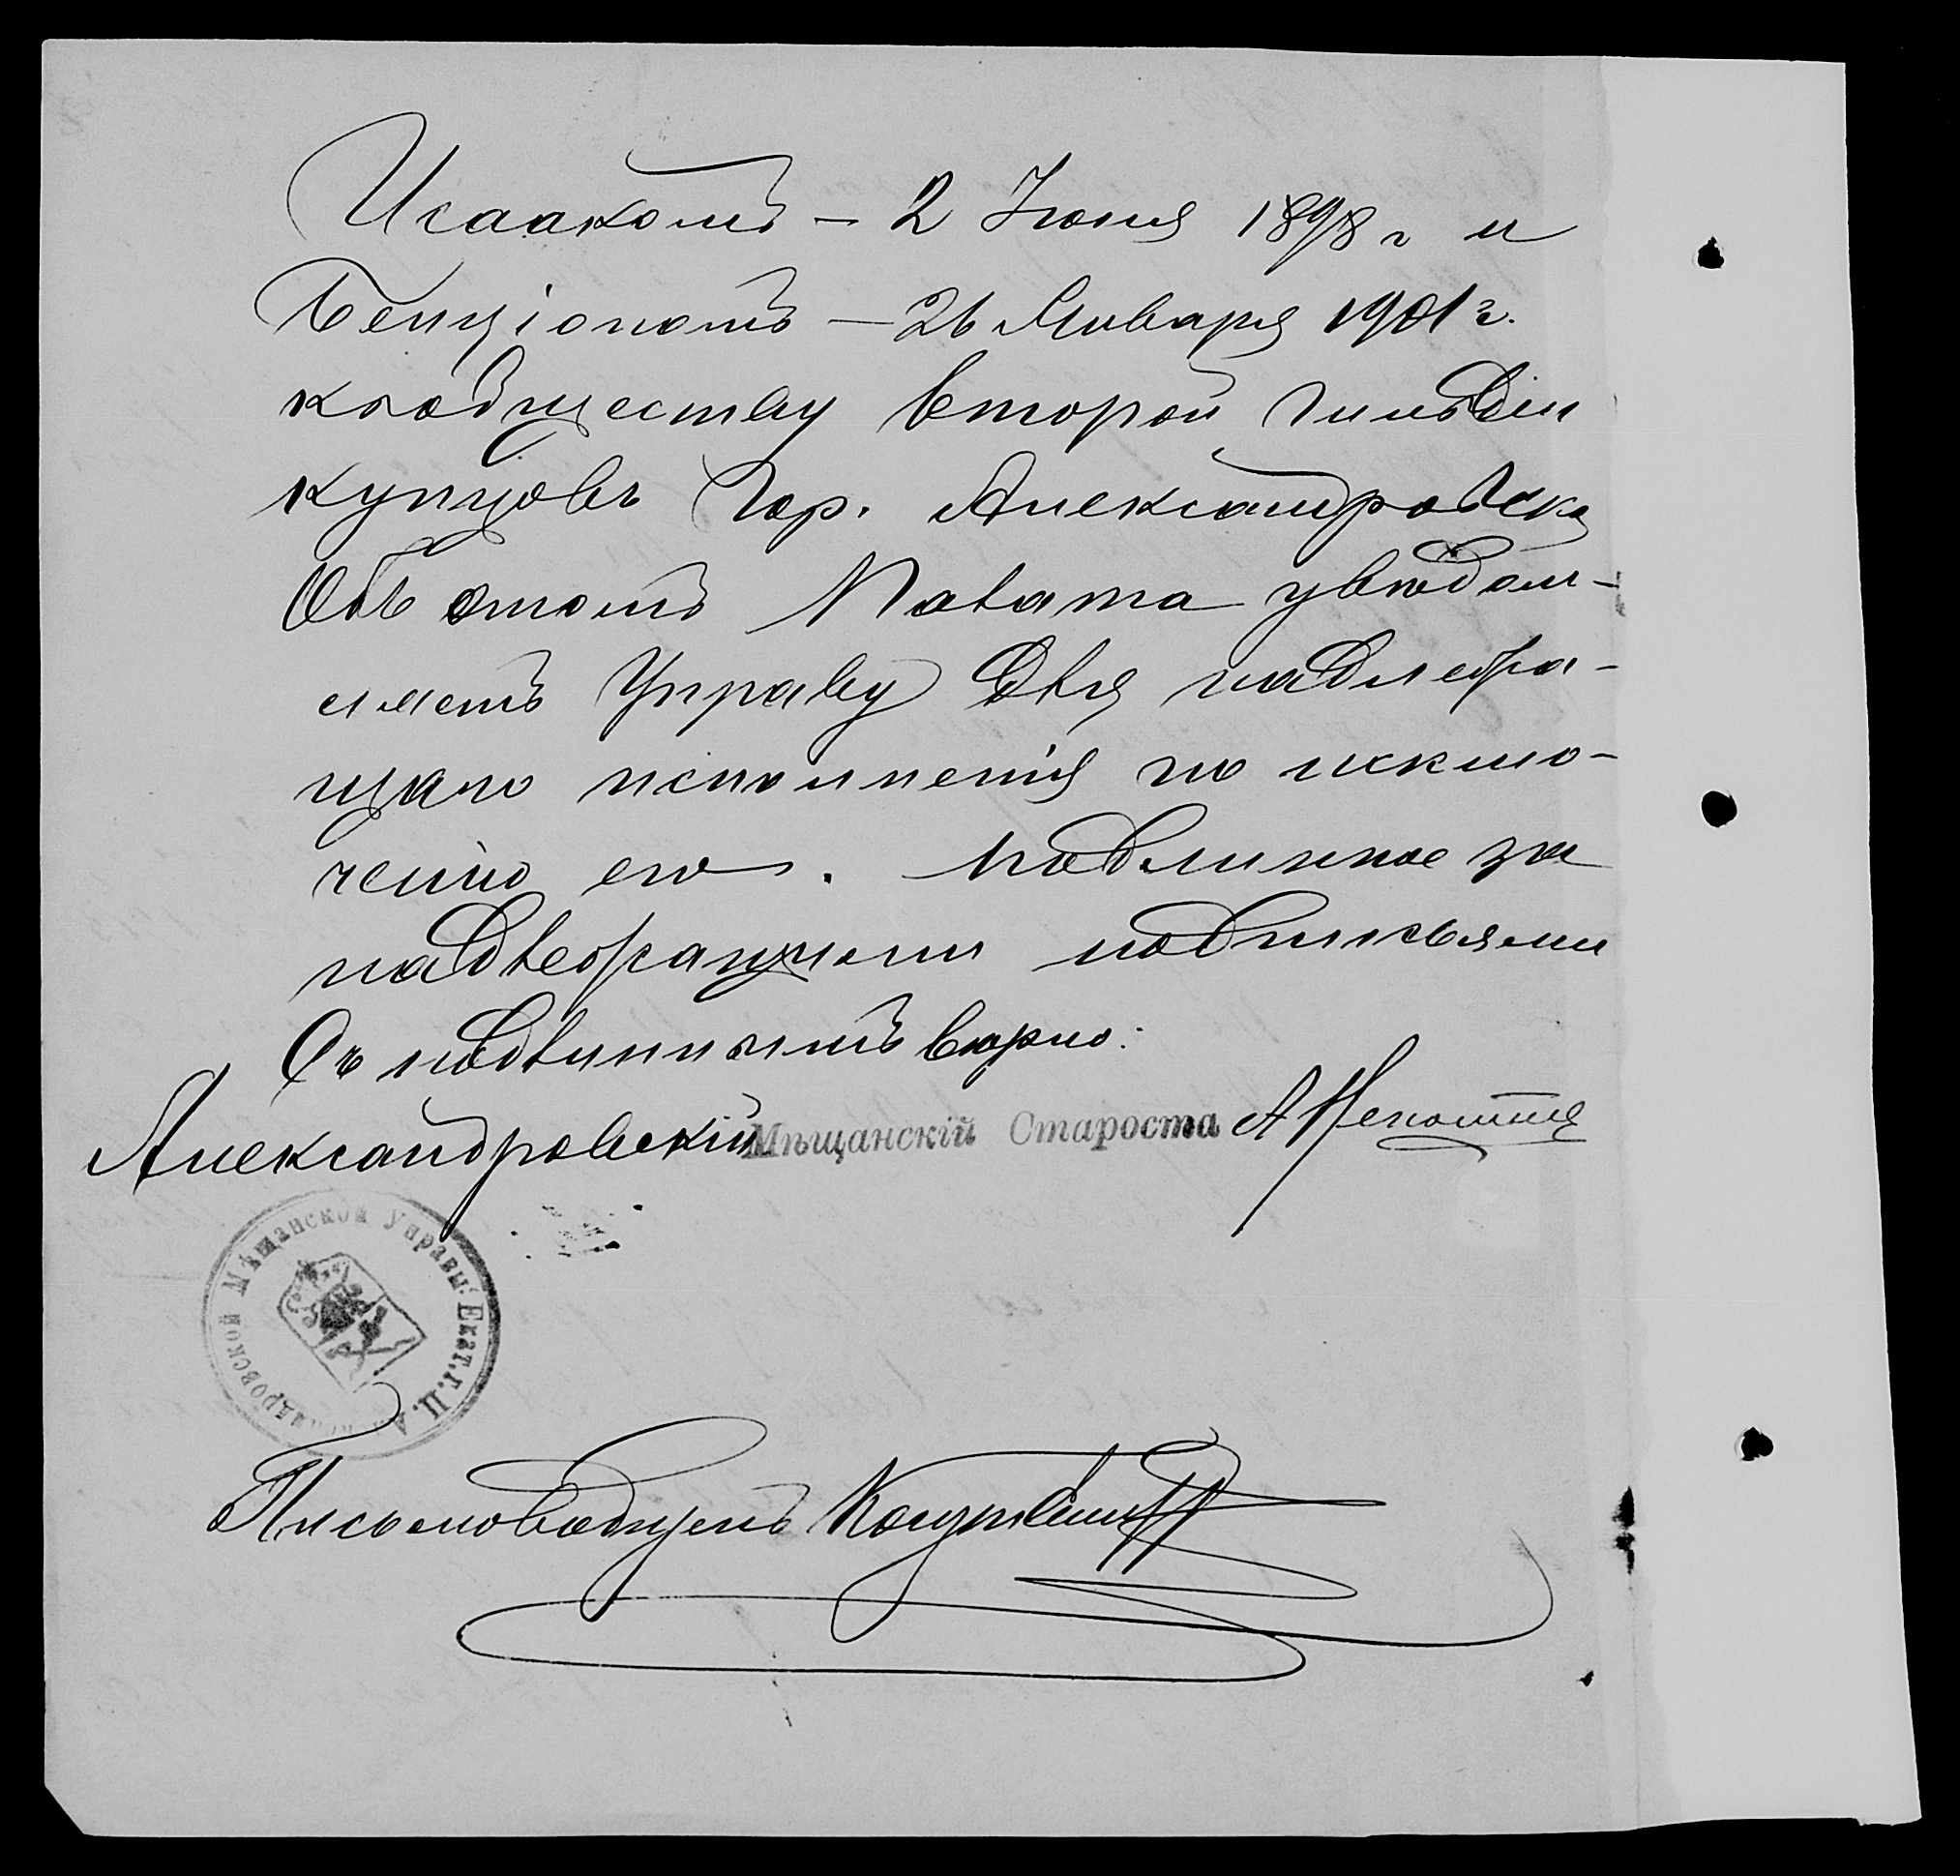 Исаакомъ – 2 Iюня 1898 г и
Бенцiономъ – 26 Января 1901 г.
къ обществу второй гильдiи
купцовъ гор. Александровска
Объ этомъ Палата увѣдом-
ляетъ Управу для надлежа-
щаго исполненiя по исклю-
ченiю его. Подлинное за
надлежащими подписями
Съ подлиннымъ вѣрно:
Александровскiй Мѣщанскiй Староста А
Мѣщанской Управы. Екат. г. Ц. А
Письмоводитель